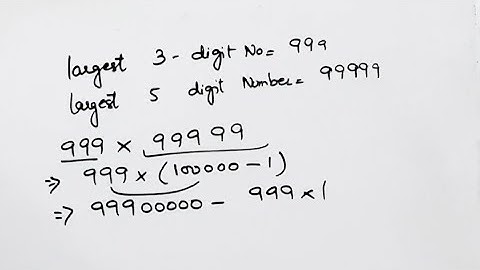 largest 3-digit No= 999
largest 5 digit Number= 99999
999 × 99999
⇒ 999 × (100000 - 1)
⇒ 99900000 - 999 × 1